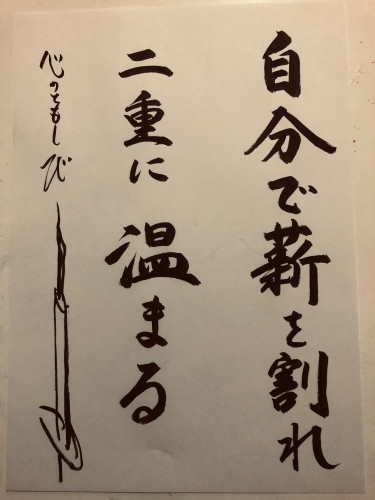 自分で薪を割れ
二重に温まる
心のともしび